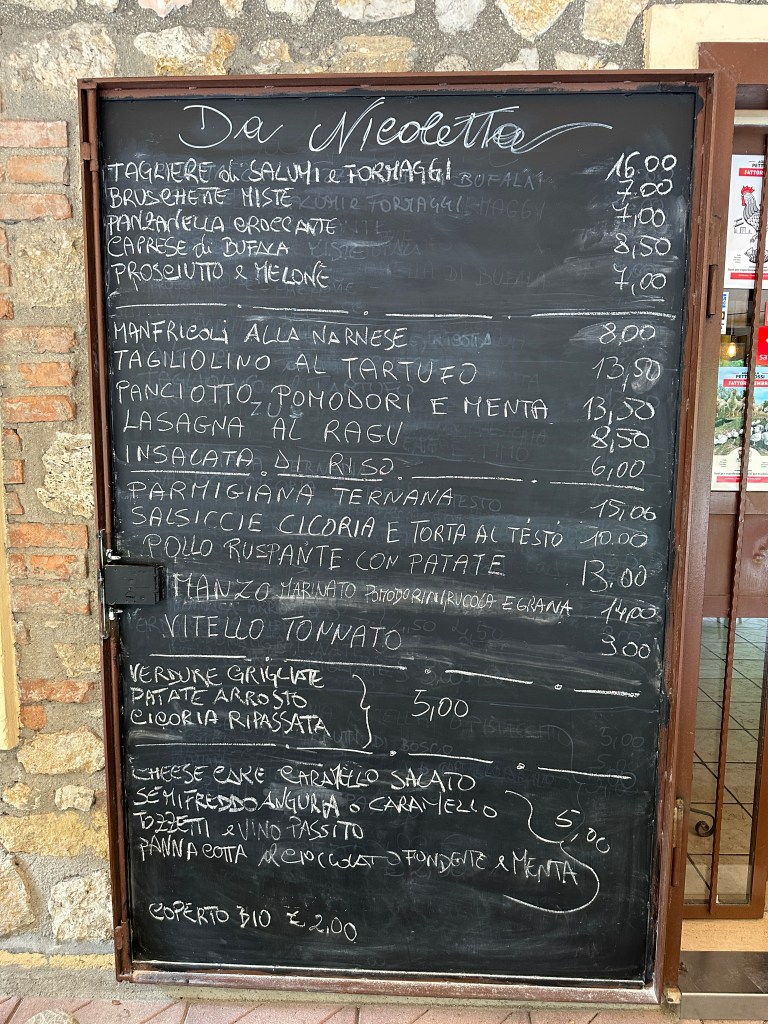 Da Nicoletta
TAGLIERE di SALUMI e FORMAGGI 16.00
BRUSCHETTE MISTE 7.00
PANZANELLA CROCCANTE 7,00
CAPRESE di BUFALA 8,50
PROSCIUTTO e MELONE 7,00
MANFRICOLI ALLA NARNESE 8,00
TAGILIOLINO AL TARTUFO 13,50
PANCIOTTO, POMODORI E MENTA 13,50
LASAGNA AL RAGU 8,50
INSALATA DI RISO 6,00
PARMIGIANA TERNANA 15,00
SALSICCIE CICORIA E TORTA AL TESTO 10.00
POLLO RUSPANTE CON PATATE 13.00
MANZO MARINATO POMODORINI RUCOLA E GRANA 14,00
VITELLO TONNATO 9.00
VERDURE GRIGLIATE
PATATE ARROSTO 5,00
CICORIA RIPASSATA
CHEESE CAKE CARAMELLO SALATO
SEMIFREDDO ANGURIA o CARAMELLO 5,00
TOZZETTI e VINO PASSITO
PANNA COTTA AL CIOCCOLATO FONDENTE e MENTA
COPERTO BIO £ 2,00